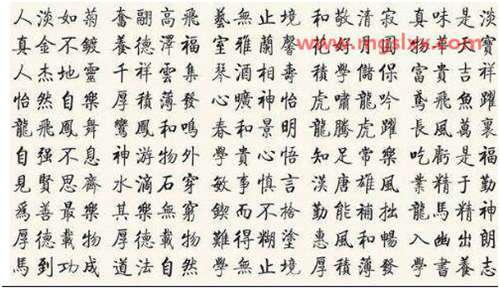 人淡如菊 奮翮高飛 藝無止境 和敬清寂 真味是淡
真金不鍍 養德澤福 室雅蘭馨 好月圓 寶
www.mgslxx.com
人杰地靈 千祥雲集 琴 相壽 積學儲 富貴吉祥
怡然自樂 厚積薄發 曠神怡 虎嘯龍吟 鳶飛魚躍
龍飛鳳舞 鸞鳳和鳴 春和景明 龍騰虎躍 長風萬裏
自强不息 神游物外 學貴心悟 知足常樂 吃虧是福
見賢思齊 水滴石穿 敏事慎言 漢唐雄風 業精于勤
爲善最樂 其樂無窮 鍥而不捨 勤能補拙 龍馬精神
厚德載物 厚德載物 難得糊塗 惠風和暢 入幽出朗
馬到功成 道法自然 學無止境 厚積薄發 學書養志